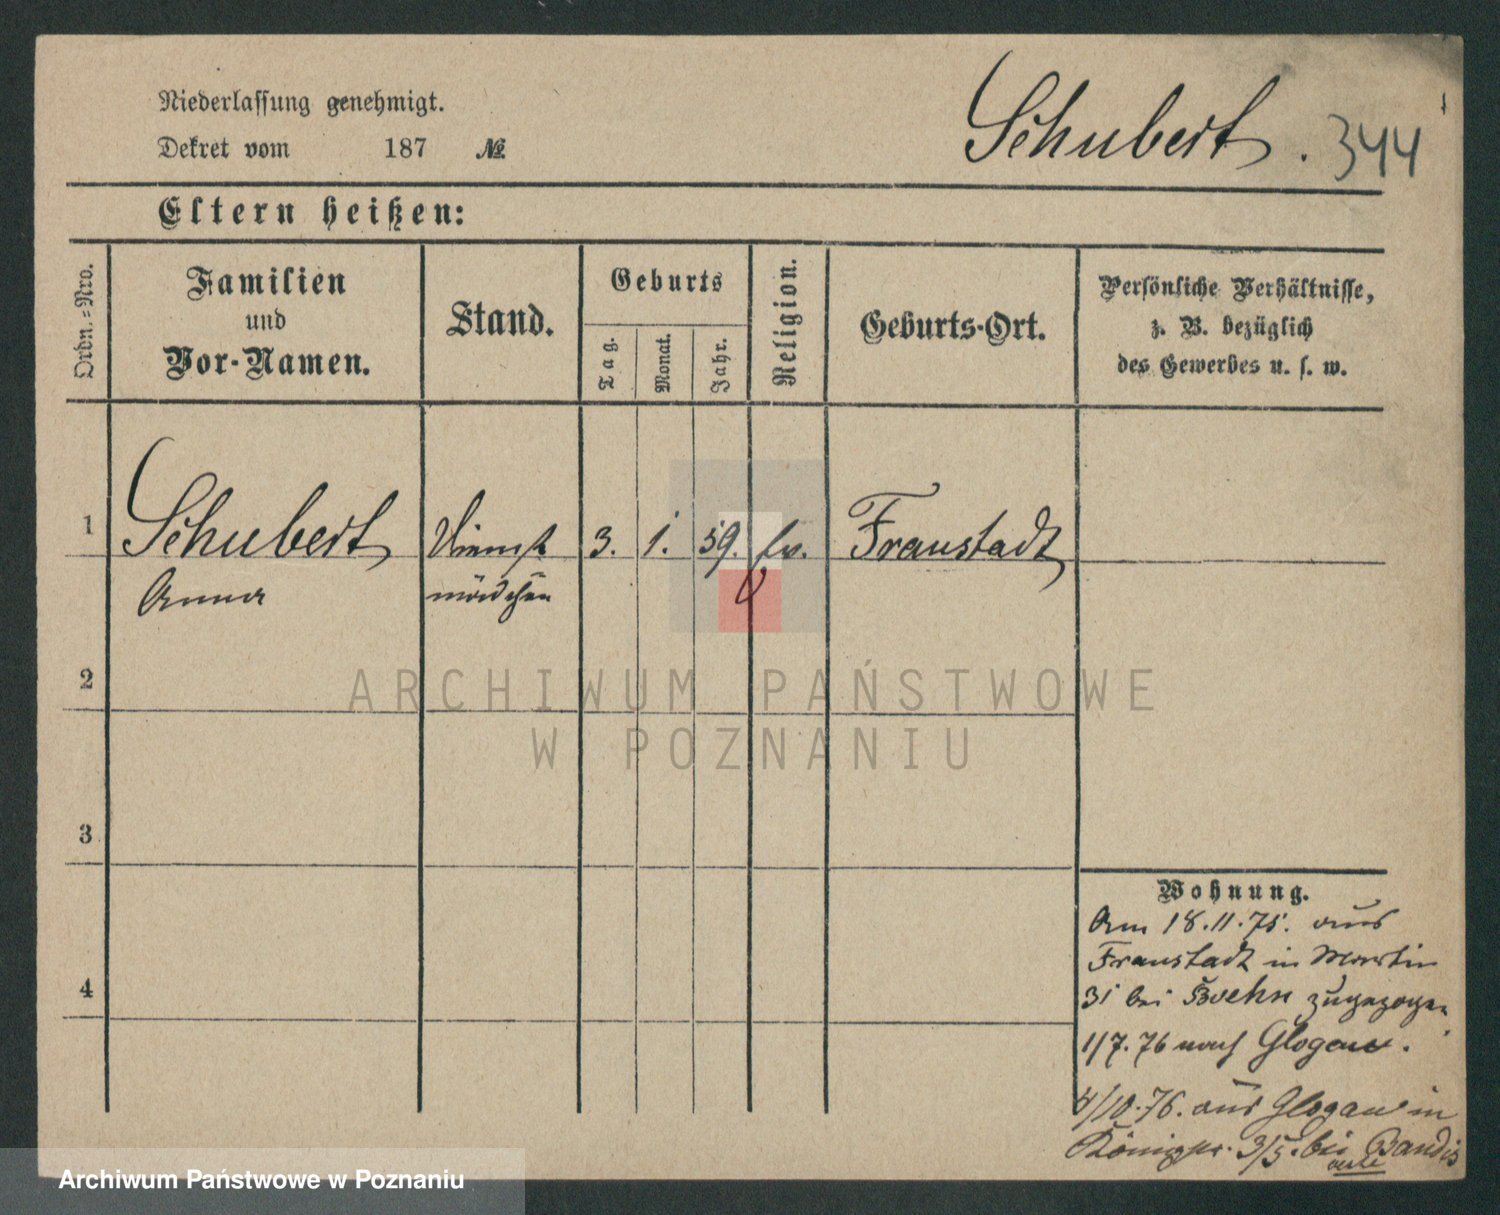 Niederlassung genehmigt.
Dekret vom 187 №
Schubert. 344
Eltern heißen:
Ordn.=Nro.
Familien
und
Vor-Namen.
Stand.
Geburts
Tag.
Monat.
Jahr.
Religion.
Geburts-Ort.
Persönliche Verhältnisse,
z. B. bezüglich
des Gewerbes u. s. w.
1 Schubert Dienst 3. 1. 59. ev. Fraustadt
Anna mädchen
2
3
4
Wohnung.
Am 18.11.75. aus
Fraustadt in Martin
31 bei zugezogen
1/7.76 nach Glogau.
4/10.76. aus Glogau in
Königstr. 3/5. bei
ARCHIWUM PAŃSTWOWE
W POZNANIU
Archiwum Państwowe w Poznaniu